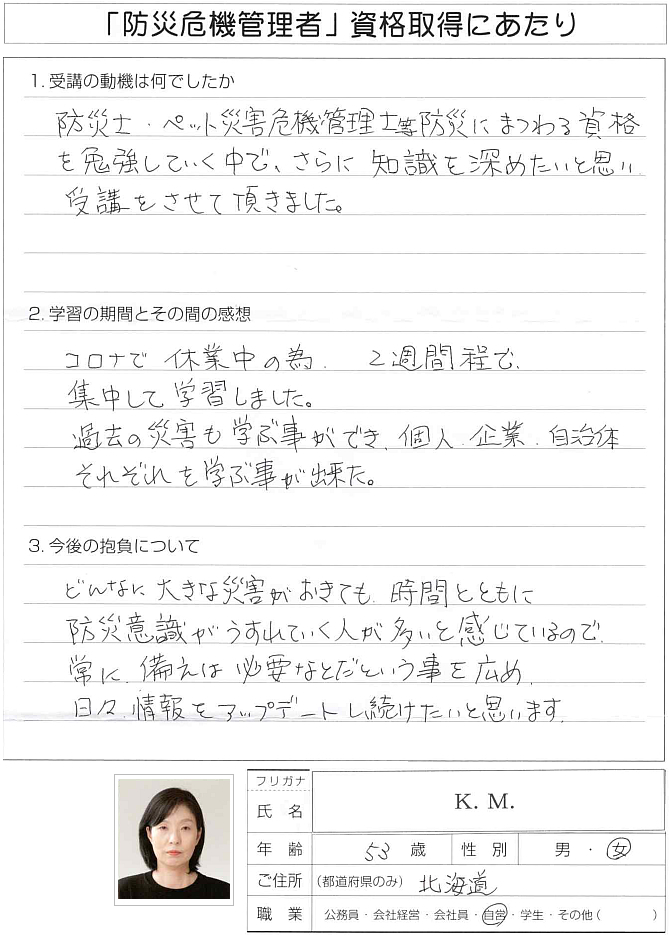 「防災危機管理者」資格取得にあたり
1. 受講の動機は何でしたか
防災士・ペット災害危機管理士等防災にまつわる資格
を勉強していく中で、さらに 知識を深めたいと思い
受講をさせて頂きました。
2. 学習の期間とその間の感想
コロナで 休業中の為、 2週間程で、
集中して学習しました。
過去の災害も学ぶ事ができ、個人、企業、自治体
それぞれを学ぶ事が出来た。
3. 今後の抱負について
どんなに大きな災害がおきても、時間とともに
防災意識がうすれていく人が多いと感じているので、
常に、備えは必要なとだという事を広め、
日々、情報をアップデートし続けたいと思います。
フリガナ
氏 名 K. M.
年 齢 53 歳 性 別 男 ・ 女
ご住所 (都道府県のみ) 北海道
職 業 公務員・会社経営・会社員・自営・学生・その他 ( )